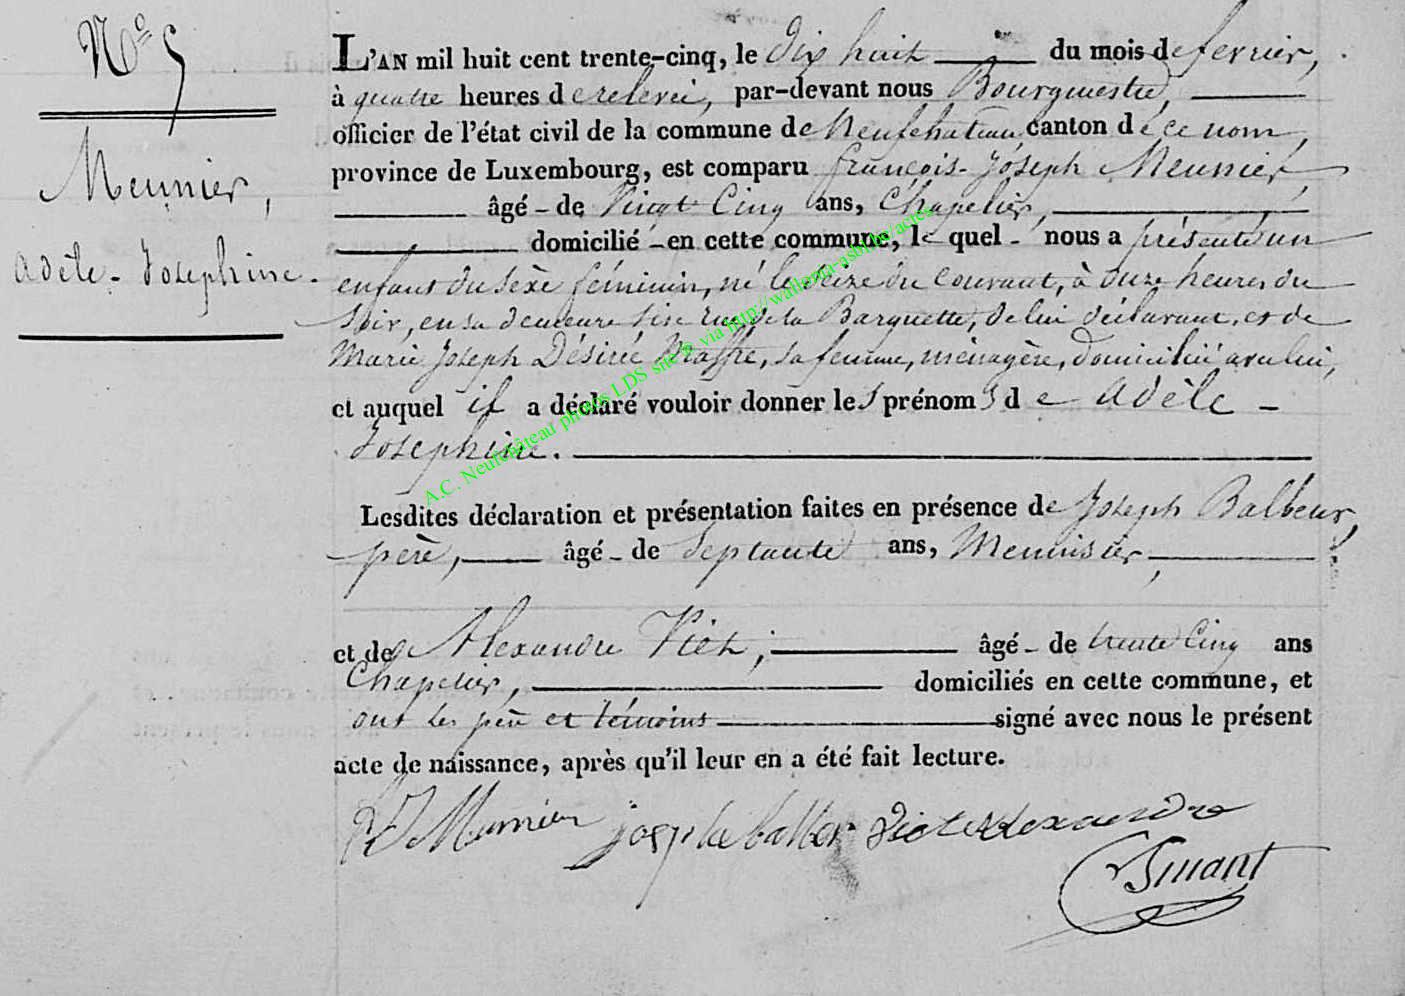 N.o 5
Meunier,
Adèle-Josephine.
L'AN mil huit cent trente-cinq, le dix huit du mois de fevrier,
à quatre heures de relevée, par-devant nous Bourgmestre,
officier de l'état civil de la commune de Neufchateau, canton de ce nom,
province de Luxembourg, est comparu François-Joseph Meunier,
âgé - de Vingt Cinq ans, Chapelier,
domicilié - en cette commune, le quel - nous a présenté un
enfant du sèxe féminin, né le seize du courant, à onze heures du
soir, en sa demeure sise rue de la Barquette, de lui déclarant, et de
Marie Joseph Désirée sa femme, ménagère, domiciliée avec lui,
et auquel il a déclaré vouloir donner les prénoms de Adèle -
Josephine.
Lesdites déclaration et présentation faites en présence de Joseph Balbeur,
père, âgé - de Septante ans, Menuisier,
et de Alexandre Viet, âgé - de trente Cinq ans
Chapelier, domiciliés en cette commune, et
ont les père et témoins signé avec nous le présent
acte de naissance, après qu'il leur en a été fait lecture.
Meunier
Viet Alexandre
A.C. Neufchâteau photos LDS site © via http://wallonia-asbl.be/actes